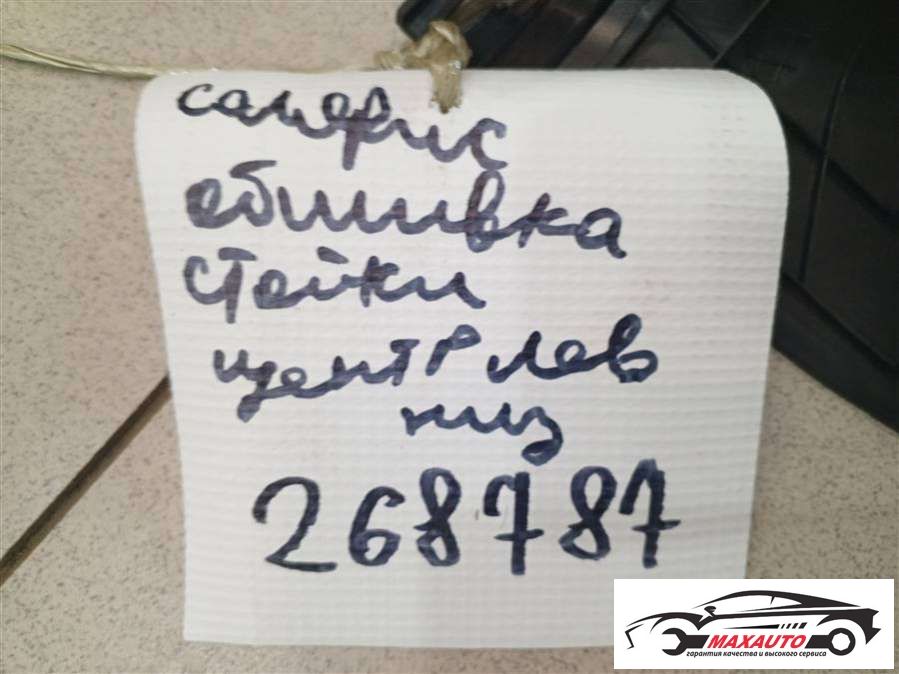 санфис
обшивка
стойки
центр лев
низ
268787
MAXAUTO
гарантия качества и высокого сервиса